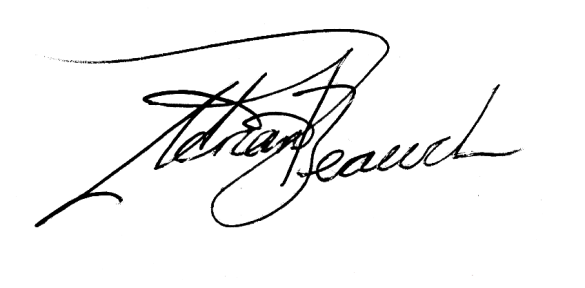 Adrian Beauch